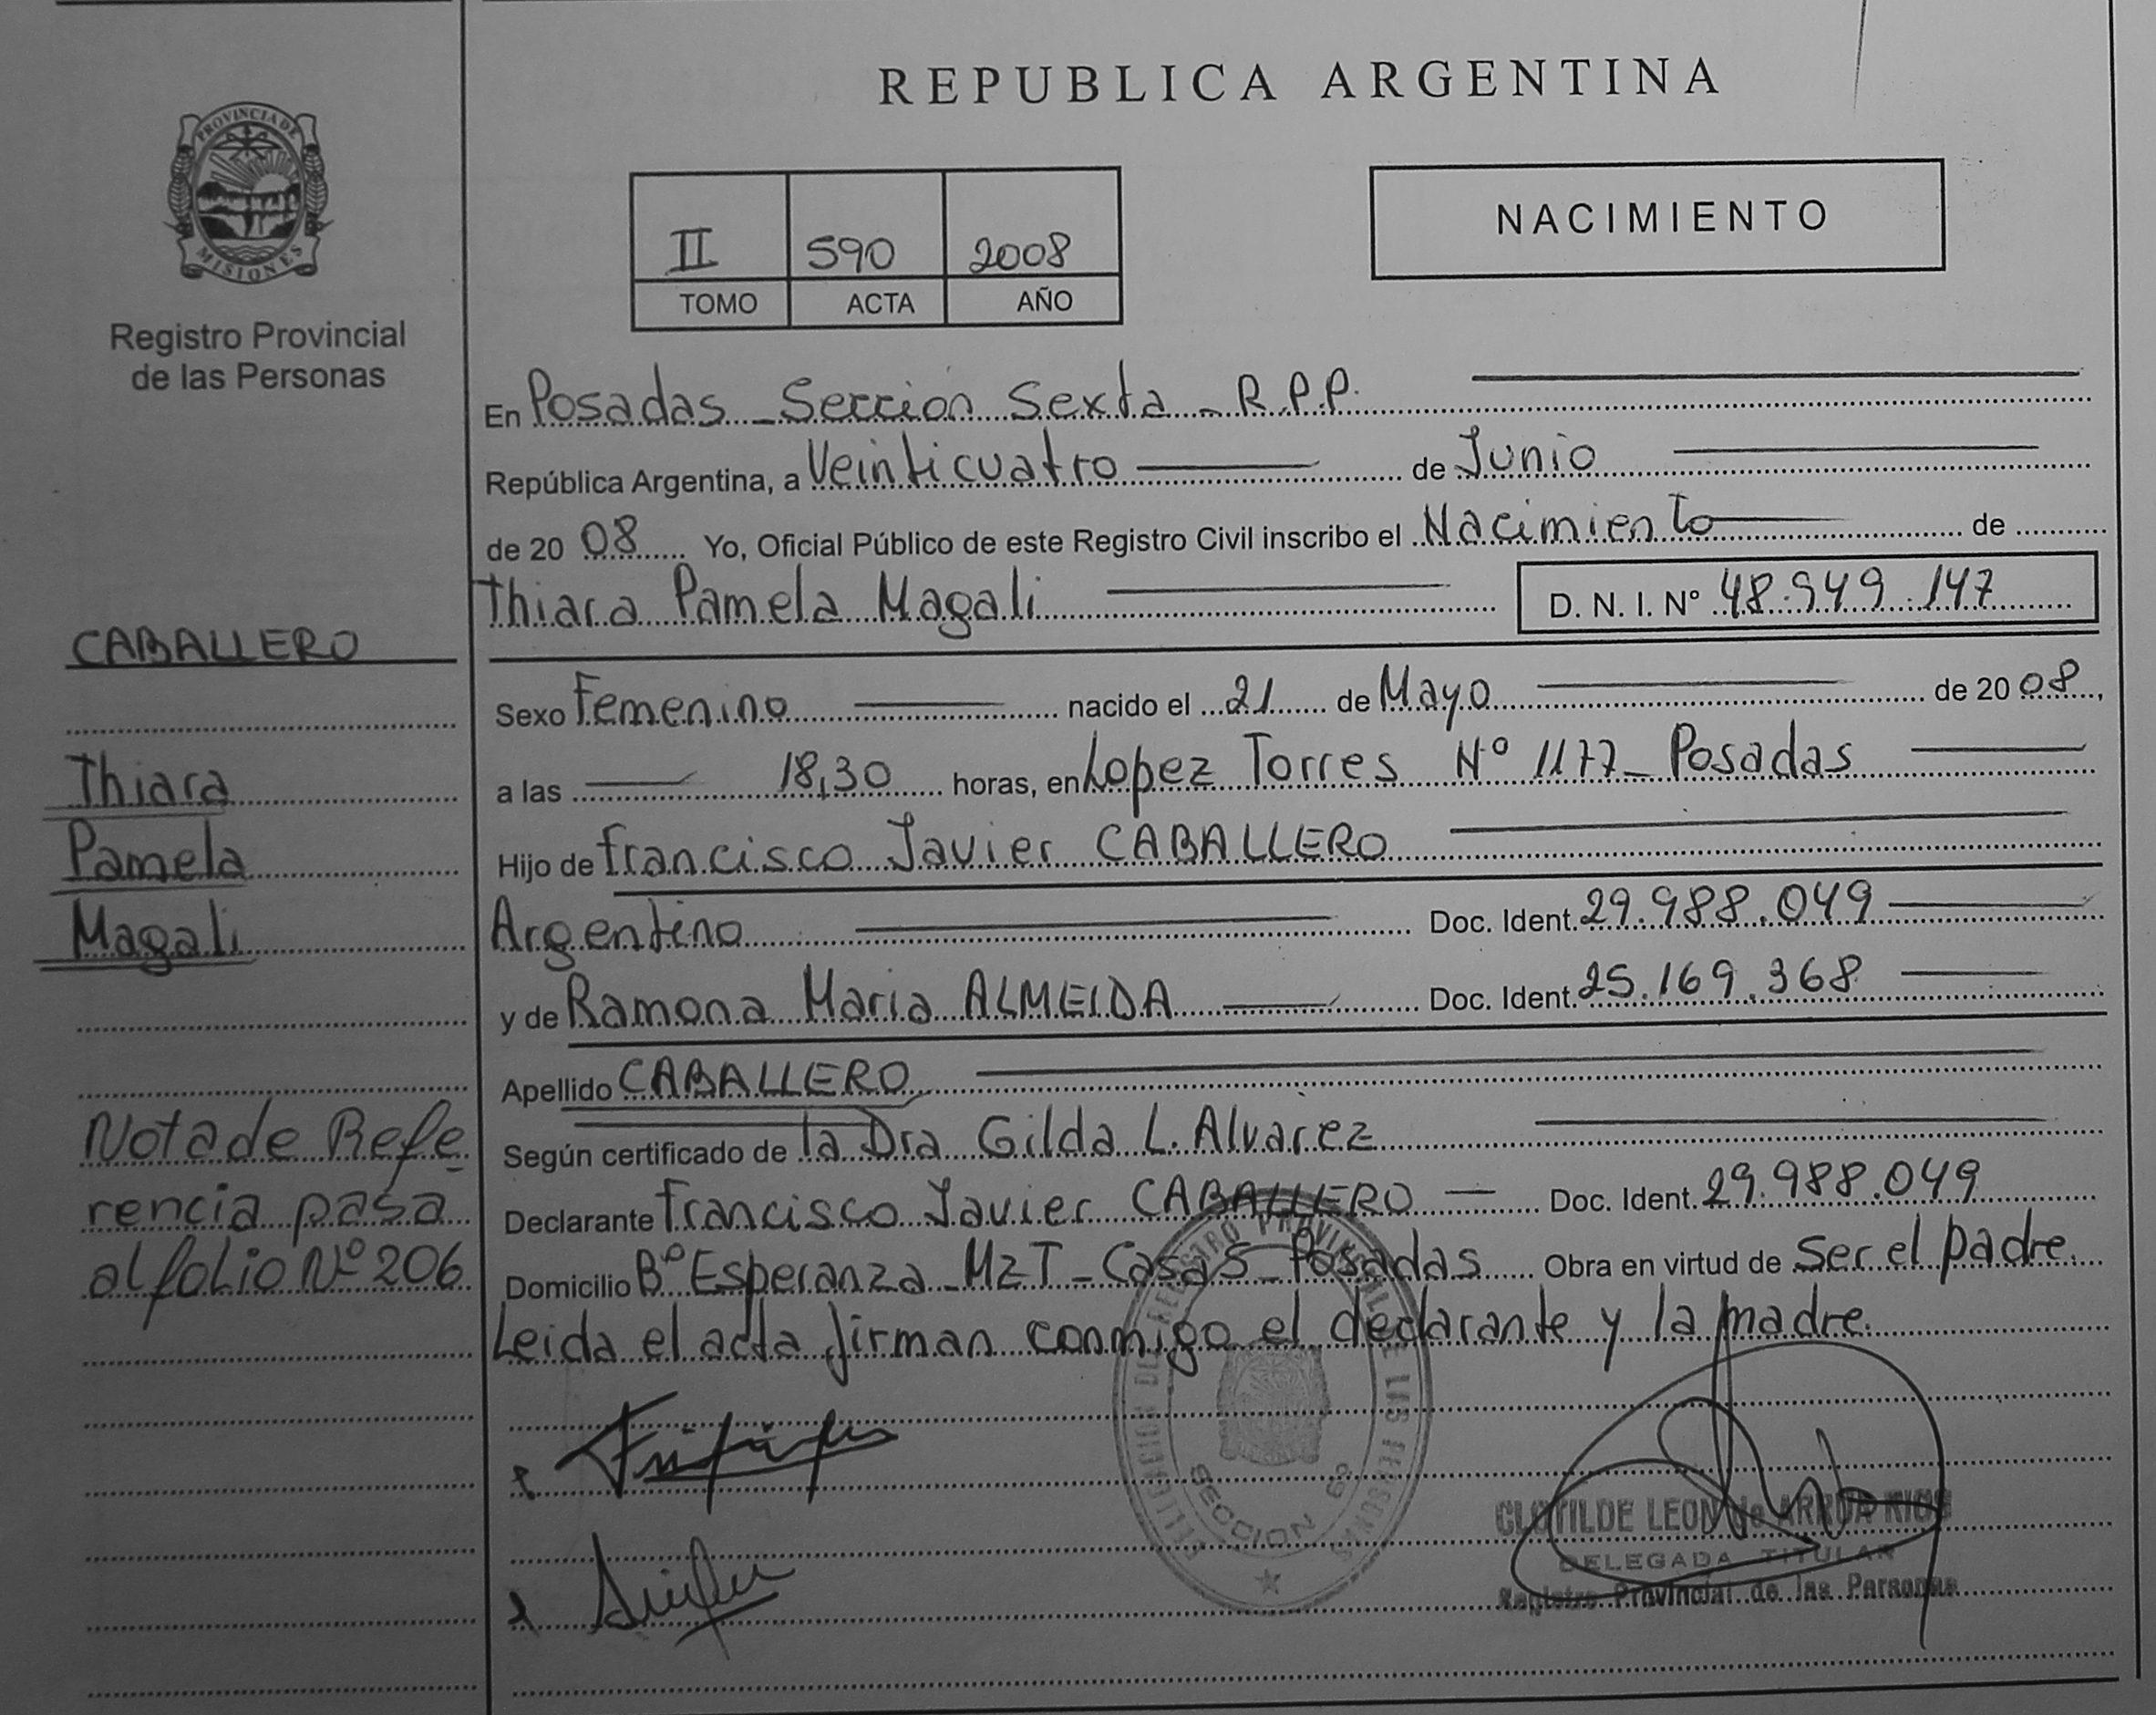 REPUBLICA ARGENTINA
PROVINCIA DE
MISIONES
Registro Provincial
de las Personas
II 590 2008
TOMO ACTA AÑO
NACIMIENTO
En Posadas - Sección Sexta - R.P.P.
República Argentina, a Veinticuatro de Junio
de 2008 Yo, Oficial Público de este Registro Civil inscribo el Nacimiento de
Thiara Pamela Magali D. N. I. Nº 48.949.147
CABALLERO
Thiara
Pamela
Magali
Sexo Femenino nacido el 21 de Mayo de 2008,
a las 18,30 horas, en Lopez Torres Nº 1177 - Posadas
Hijo de Francisco Javier CABALLERO
Argentino Doc. Ident. 29.988.049
y de Ramona Maria ALMEIDA Doc. Ident. 25.169.368
Apellido CABALLERO
Según certificado de la Dra Gilda L. Alvarez
Declarante Francisco Javier CABALLERO Doc. Ident. 29.988.049
Domicilio Bº Esperanza - MzT - Casa 5 - Posadas Obra en virtud de Ser el padre.
Leida el acta firman conmigo el declarante y la madre.
Nota de Refe
rencia pasa
al folio Nº 206
REGISTRO PROVINCIAL DE LAS PERSONAS
SECCION 6ª
CLOTILDE LEON de ARRUA RIOS
DELEGADA TITULAR
Registro Provincial de las Personas